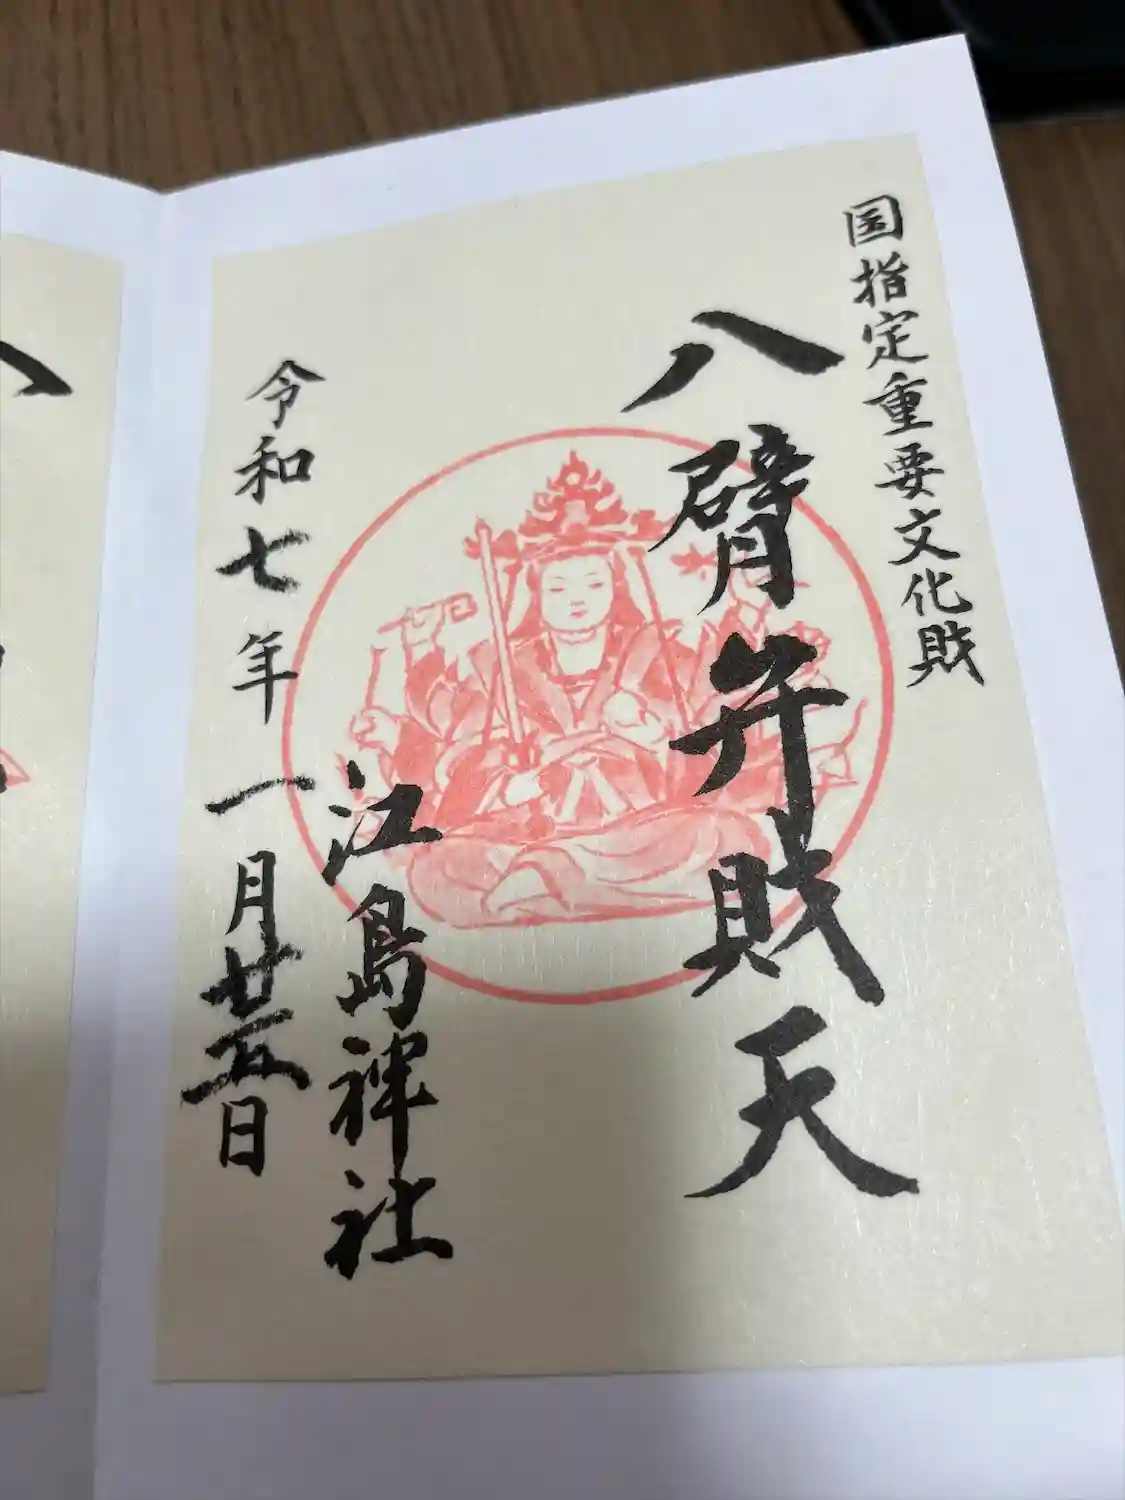 国指定重要文化財
八臂弁財天
江島神社
令和七年一月廿五日
八